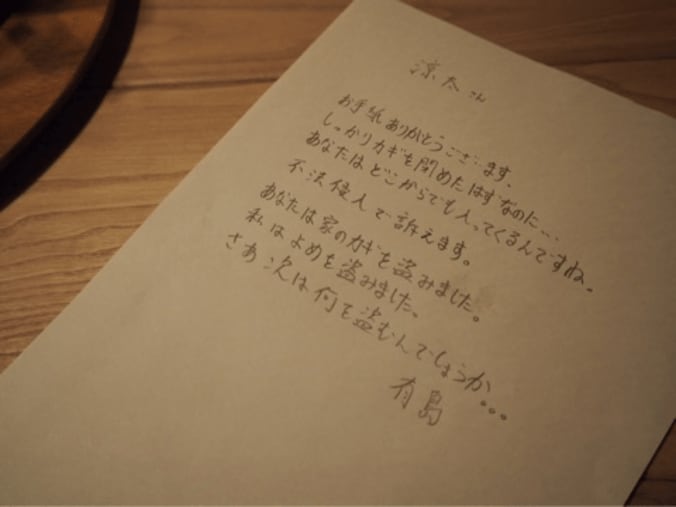 涼太さん
お手紙ありがとうございます。
しっかりカギを閉めたはずなのに...
あなたはどこからでも入ってくるんですね。
不法侵入で訴えます。
あなたは家のカギを盗みました。
私はよめを盗みました。
さあ次は何を盗むんでしょうか...
有島